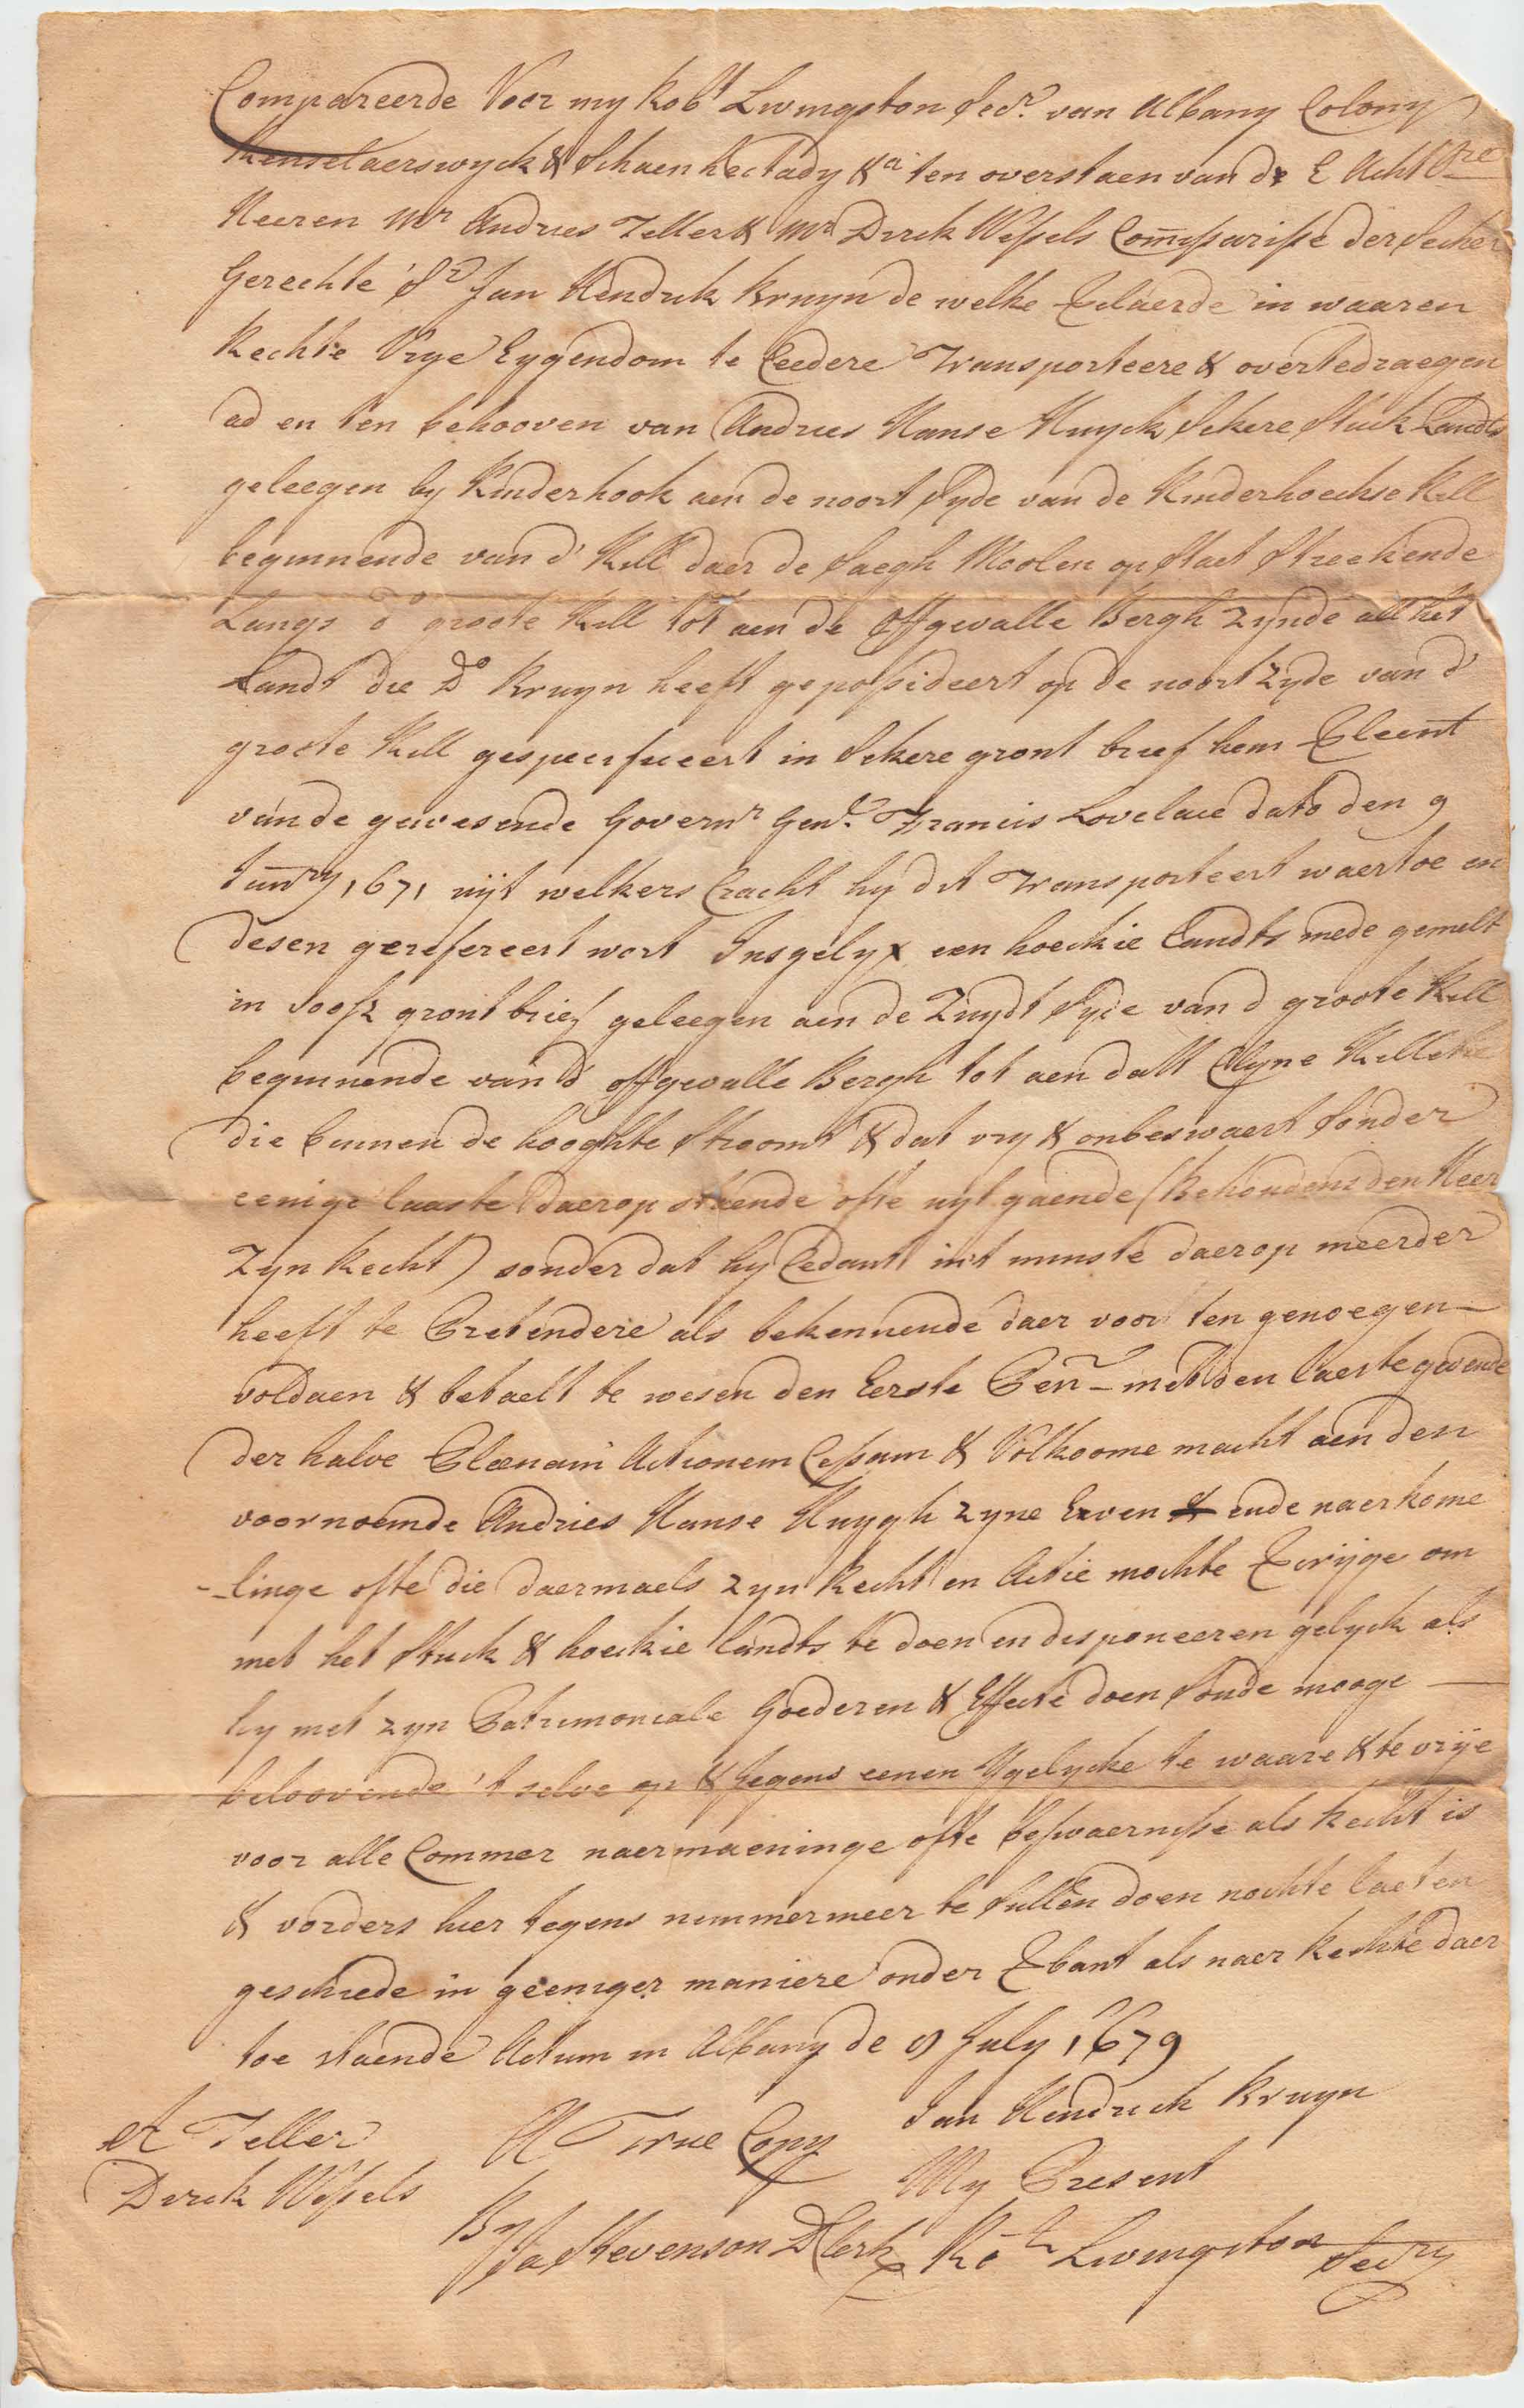 Compareerde Voor my Robt Livingston Secr. van Albany Colony
Renselaerswyck & Schaenhectady &a ten overstaen van de E Achtbre
Heeren Mr Andries Teller & Mr Dirck Wessels Commissarisse der
Gerechte Sr Jan Hendrik Bruyn de welke in waaren
Rechte Vrye Eygendom te Ceedere Transporteere & overtedraegen
ad en ten behooven van Andries Hanse Huyck Sekere Stuck Landts
geleegen by Kinderhook aen de noort Syde van de Kinderhoeckse Kill
beginnende van d' Kill daer de Saegh Moolen op Staet Streckende
Langs d' groote Kill tot aen de Offgevalle Bergh zynde all het
Landt die Do Bruyn heeft gepossideert op de noort zyde van d'
groote Kill gespecificeert in Sekere gront brief hem
van de gewesende Governr Genl. Francis Lovelace dato den 9
1671 uijt welkers Cracht hy dit Transporteert waertoe in
desen gerefereert wort Insgelyx een hoeckie Landts mede gemelt
in voorsz grontbrief geleegen aen de Zuydt Syde van d groote Kill
beginnende van d' offgevalle Bergh tot aen datt Clyne Killetie
die binnen de hooghte Stroomt & dat vry & onbeswaert Sonder
eenige laaste daerop staende ofte uyt gaende (Behoudens den Heer
Zyn Recht) sonder dat hy Cedant int minste daerop meerder
heeft te Pretendere als bekennende daer voor ten genoegen -
voldaen & betaelt te wesen den Eerste Penn - met den laeste gevende
der halve Plenam Actionem Cessam & Volkoome macht aen den
voornoemde Andries Hanse Huygh zyne Erven & ende naerkome
-linge ofte die daermaels zyn Recht en Actie mochte om
met het Stuck & hoeckie landts te doen en disponeeren gelyck als
hy met zyn Patrimoniale Goederen & Effecte doen Soude mooge -
beloovende 't selve op & Jegens eenen Ygelycke te waare & te vrije
voor alle Commer naermaeninge ofte beswaernisse als Recht is
& vorders hier tegens nimmermeer te Sullen doen nochte laeten
geschiede in geeniger maniere onder als naer Rechte daer
toe staende Actum in Albany de 9 July 1679
Jan Hendrick Bruyn
A Teller A True Copy
Dirck Wessels My Present
By Ja Stevenson DClerk Rot Livingston Secry